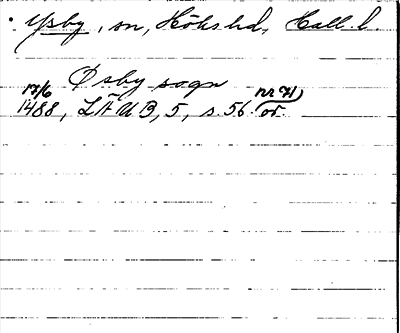 Ysby, sn, Höks hd, Hall. l.
Øsby sogn
17/6 nr 71)
1488, LÄUB, 5, s. 56. or.